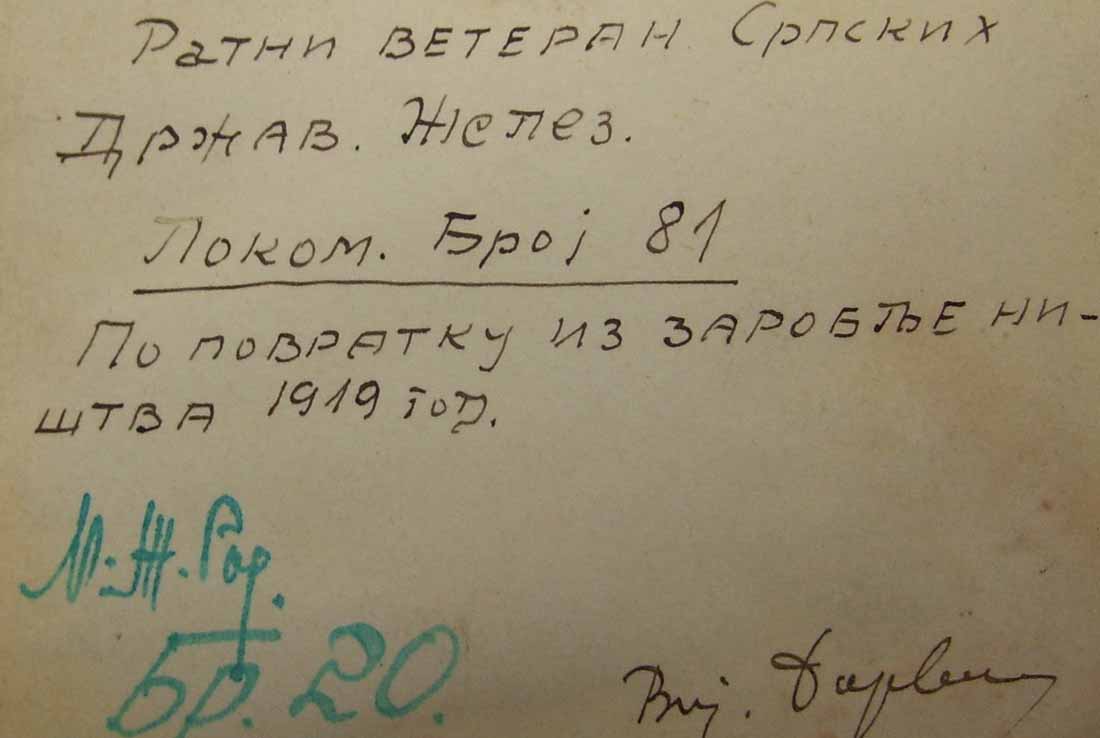 Ратни ветеран Српских
Држав. Желез.
Локом. Број 81
По повратку из заробљени-
штва 1919 год.
М. Ж. Рад.
Бр. 20.